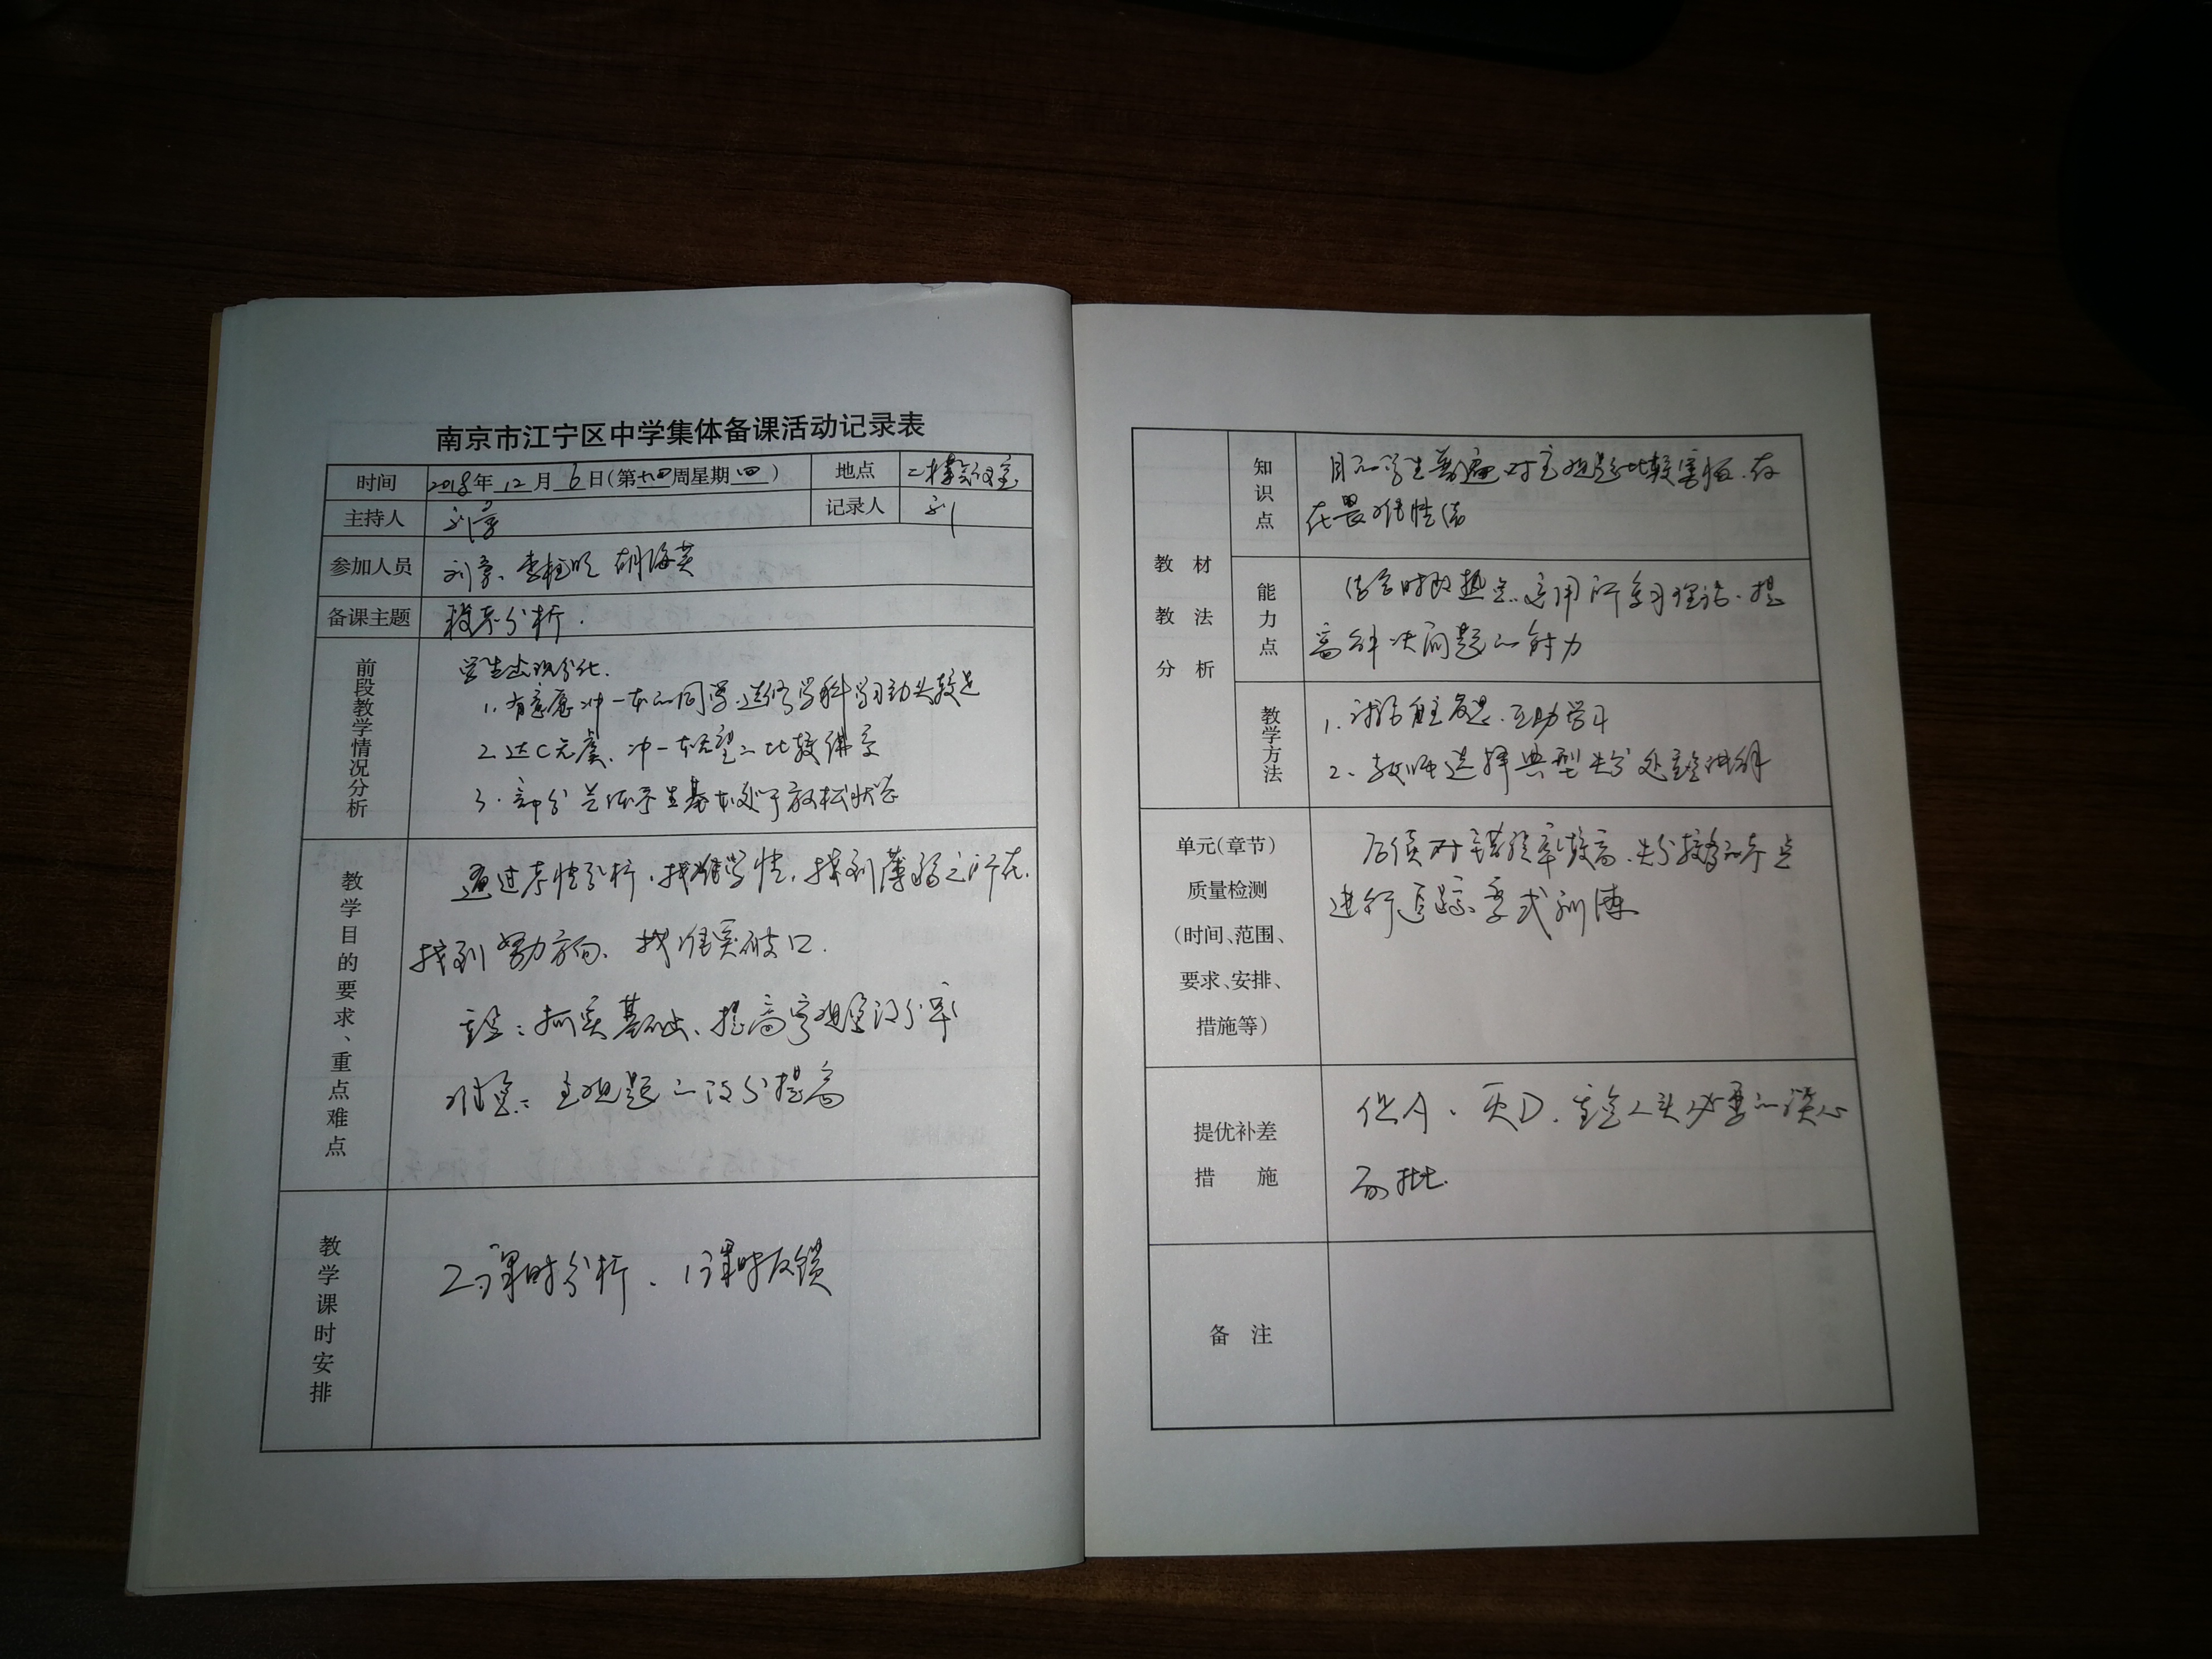 南京市江宁区中学集体备课活动记录表
时间 2018年 12 月 6 日(第十四周星期四) 地点 二楼会议室
主持人 刘 记录人 刘
参加人员 刘 李 胡海英
备课主题 分析.
前段教学情况分析
学生出现分化.
1. 有意愿冲一本的同学.选修学科学习劲头较足
2. 达C无虞、冲一本无望的比较佛系
3. 部分艺体学生基本处于放松状态
教学目的要求、重点难点
通过考情分析,找准学情,找到薄弱之所在.
找到努力方向、找准突破口.
重点:抓实基础、提高客观题得分率
难点:主观题的得分提高
教学课时安排
2课时分析、1课时反馈
教材教法分析
知识点
目前学生普遍对主观题比较害怕.存
在畏难情绪
能力点
结合时政热点.运用所学习理论.提
高解决问题的能力
教学方法
1. 讨论自主反思.互助学习
2、教师选择典型失分处重点讲解
单元(章节)
质量检测
(时间、范围、
要求、安排、
措施等)
后续对错误率较高.失分较多的考点
进行追踪变式训练
提优补差
措 施
促A、灭D.重点人头必要的谈心
面批.
备 注